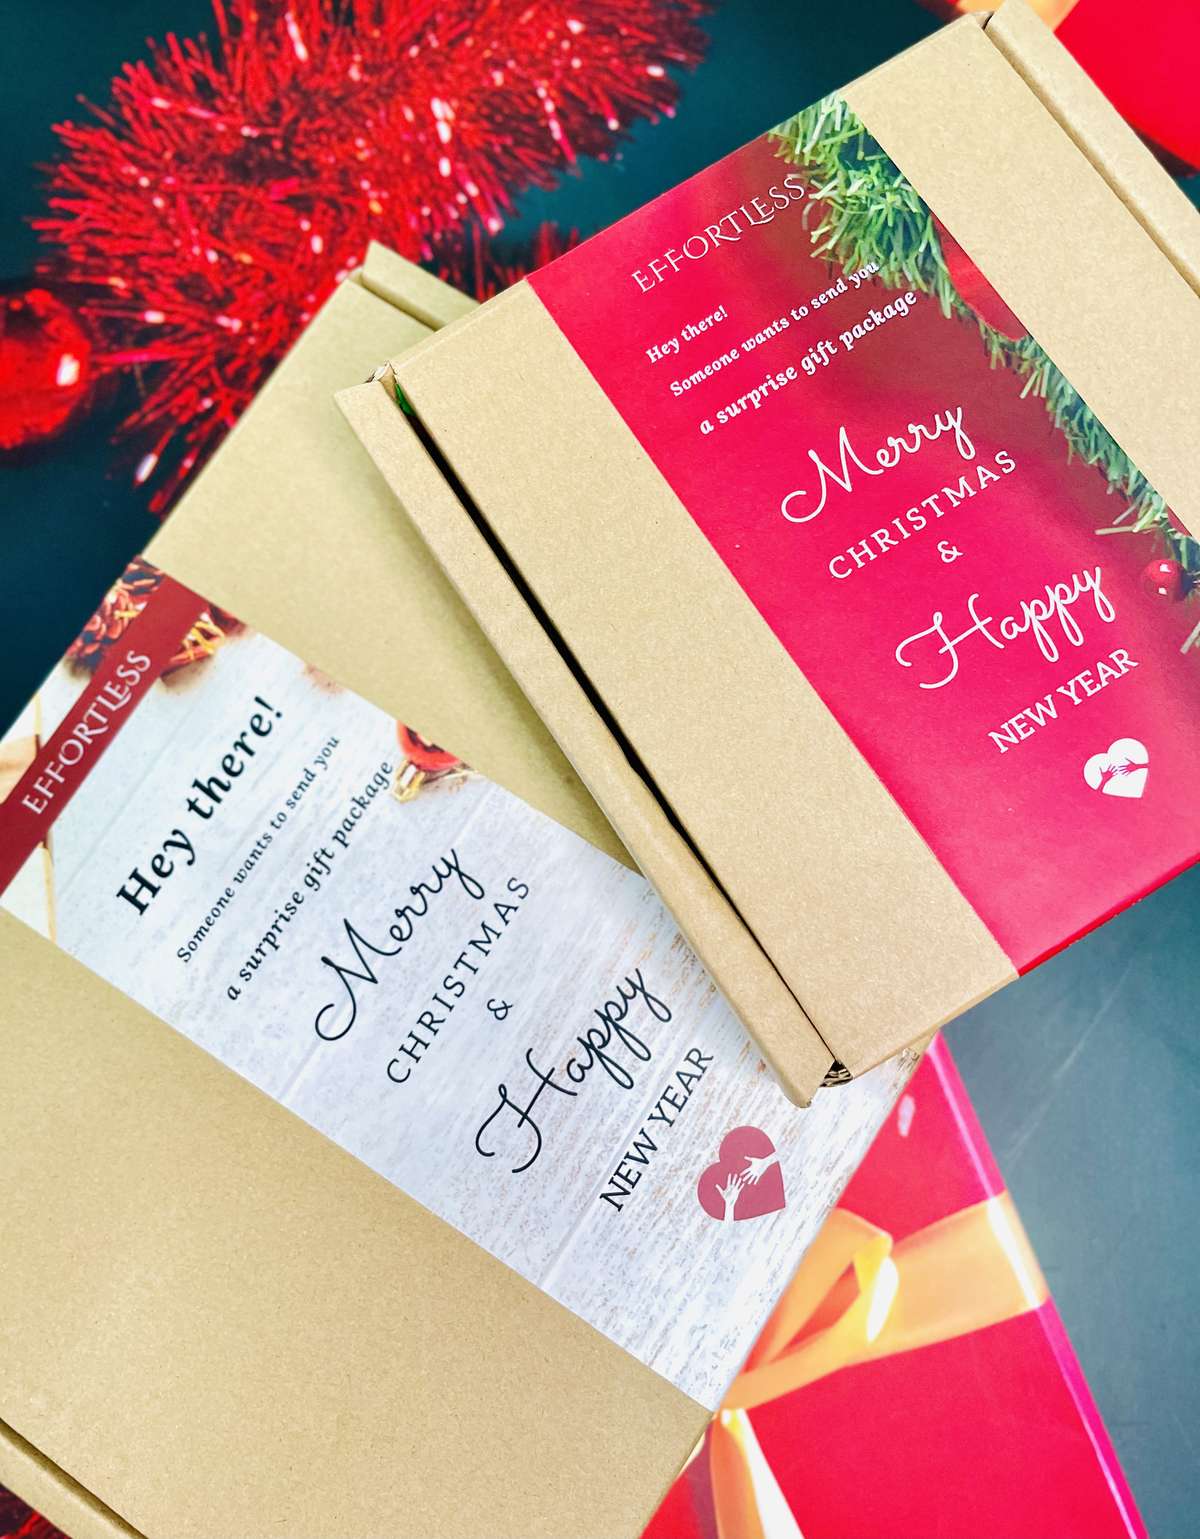 EFFORTLESS
Hey there!
Someone wants to send you
a surprise gift package
Merry
CHRISTMAS
&
Happy
NEW YEAR
EFFORTLESS
Hey there!
Someone wants to send you
a surprise gift package
Merry
CHRISTMAS
&
Happy
NEW YEAR